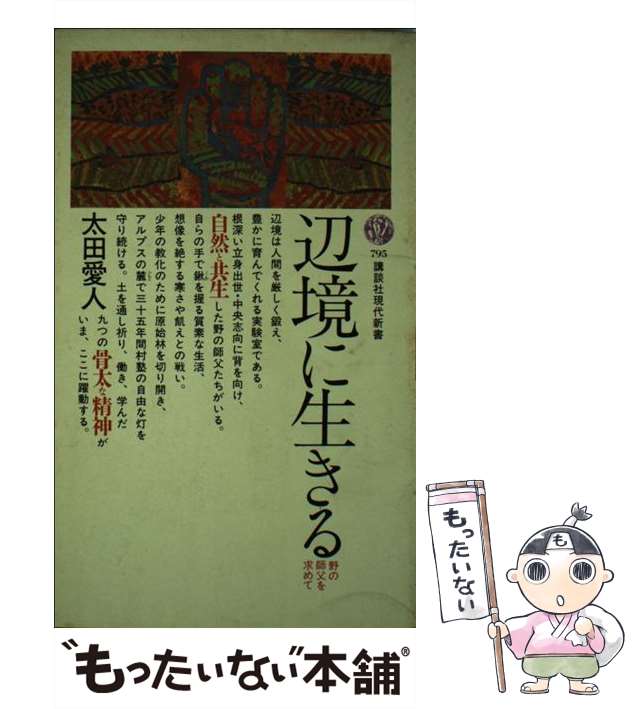 795
講談社現代新書
辺境に生きる
野の
師父を
求めて
辺境は人間を厳しく鍛え、
豊かに育んでくれる実験室である。
根深い立身出世・中央志向に背を向け、
自然と共生した野の師父たちがいる。
自らの手で鍬を握る質素な生活、
想像を絶する寒さや飢えとの戦い。
少年の教化のために原始林を切り開き、
アルプスの麓で三十五年間村塾の自由な灯を
守り続ける。土を通し祈り、働き、学んだ
九つの骨太な精神が
いま、ここに躍動する。
太田愛人
もったいない
"もったいない"本舗®